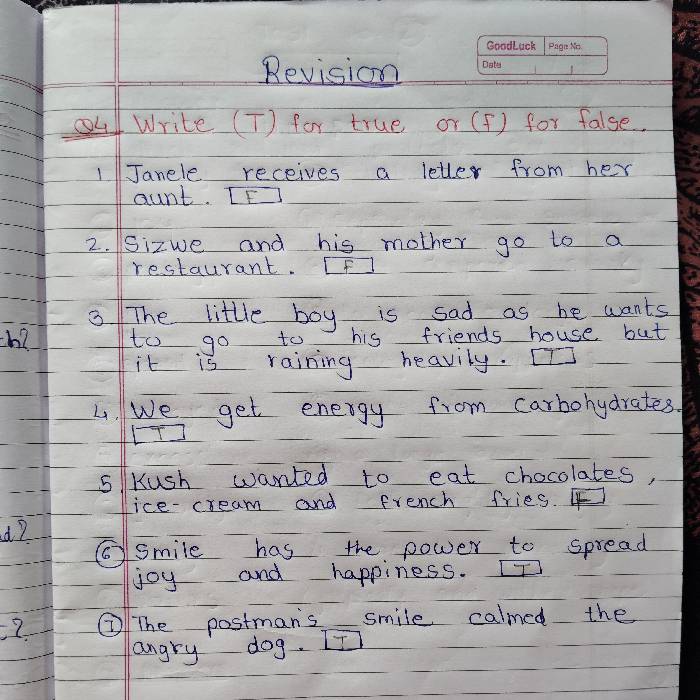 GoodLuck Page No.
Date
Revision
Q4 Write (T) for true or (f) for false.
1 Janele receives a letter from her
aunt. F
2. Sizwe and his mother go to a
restaurant. F
3 The little boy is sad as he wants
to go to his friends house but
it is raining heavily. T
4. We get energy from carbohydrates.
T
5 Kush wanted to eat chocolates,
ice-cream and french fries. F
6 Smile has the power to spread
joy and happiness. T
7 The postman's smile calmed the
angry dog. T
ch?
d?
?